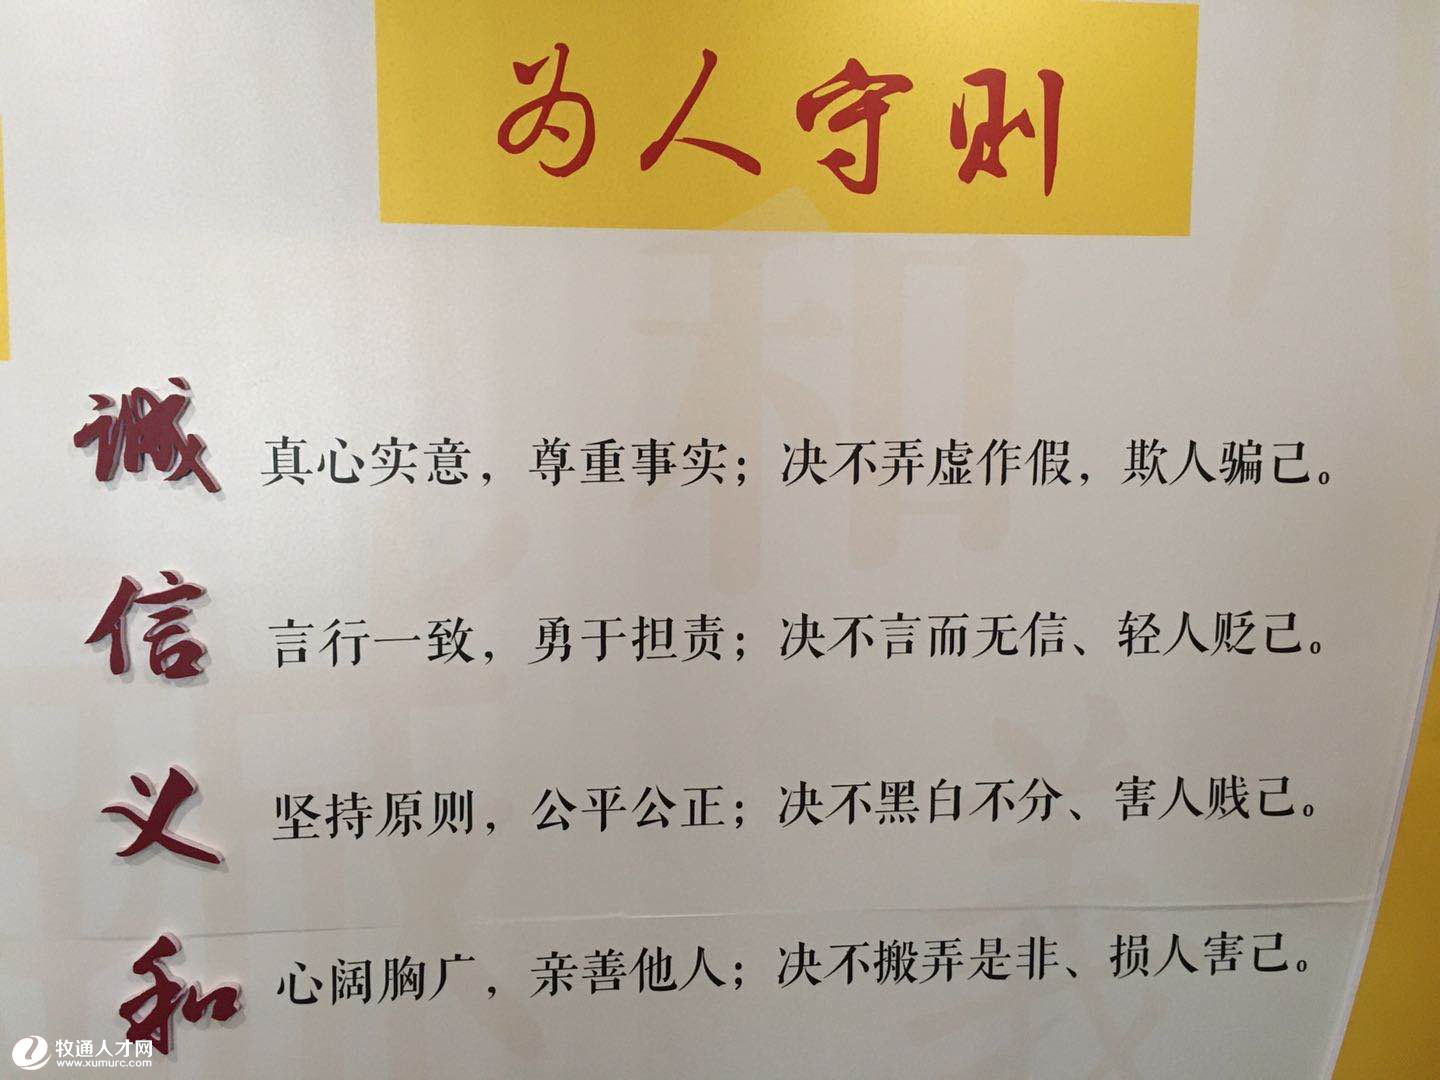 为人守则
诚 真心实意，尊重事实；决不弄虚作假，欺人骗己。
信 言行一致，勇于担责；决不言而无信、轻人贬己。
义 坚持原则，公平公正；决不黑白不分、害人贱己。
和 心阔胸广，亲善他人；决不搬弄是非、损人害己。
牧通人才网
www.xumurc.com